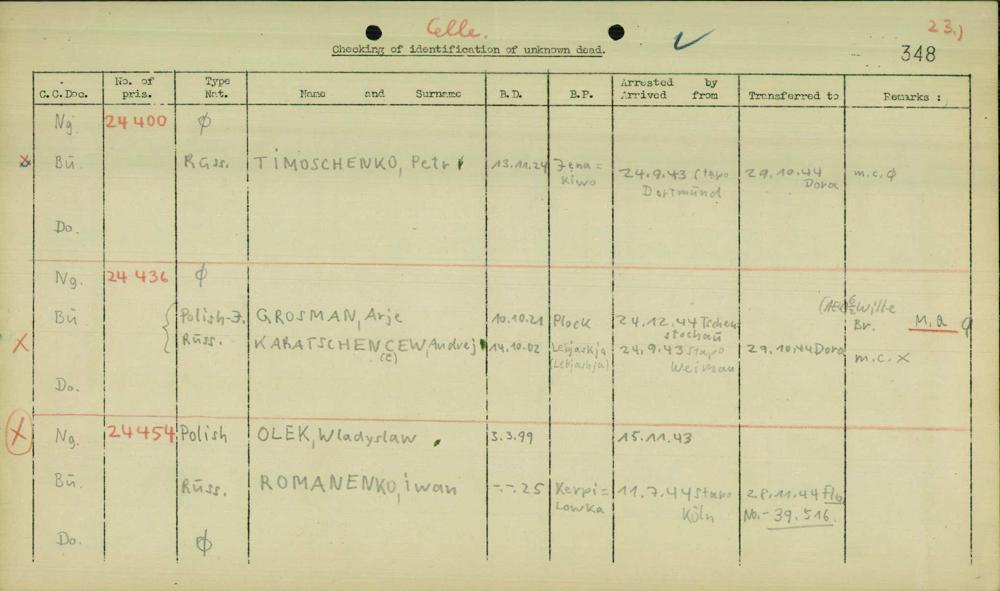 Celle.
23.)
Checking of identification of unknown dead.
348
C.C.Doc.
No. of pris.
Type Nat.
Name and Surname
B.D.
B.P.
Arrested by
Arrived from
Transferred to
Remarks :
Ng. 24 400 ϕ
x Bü. Russ. TIMOSCHENKO, Petr 13.11.24 Zena= 24.9.43 Stapo 29.10.44 m.c. ϕ
Kiwo Dortmund Dora
Do.
Ng. 24 436 ϕ
Wille
Bü Polish-J. GROSMAN, Arje 10.10.21 Plock 24.12.44 Tschen Br. M, a
stochau
X Russ. KARATSCHENCEW, Andrej 14.10.02 Lebjaskja 24.9.43 Stapo 29.10.44 Dora m.c. X
(E) (Lebjashja) Weimar
Do.
X Ng. 24454 Polish OLEK, Wladyslaw 3.3.99 15.11.43
Bü. Russ. ROMANENKO, iwan -.-.25 Kerpi= 11.7.44 Stapo 28.11.44 Flo
Lowka Köln No.- 39.516.
Do. ϕ